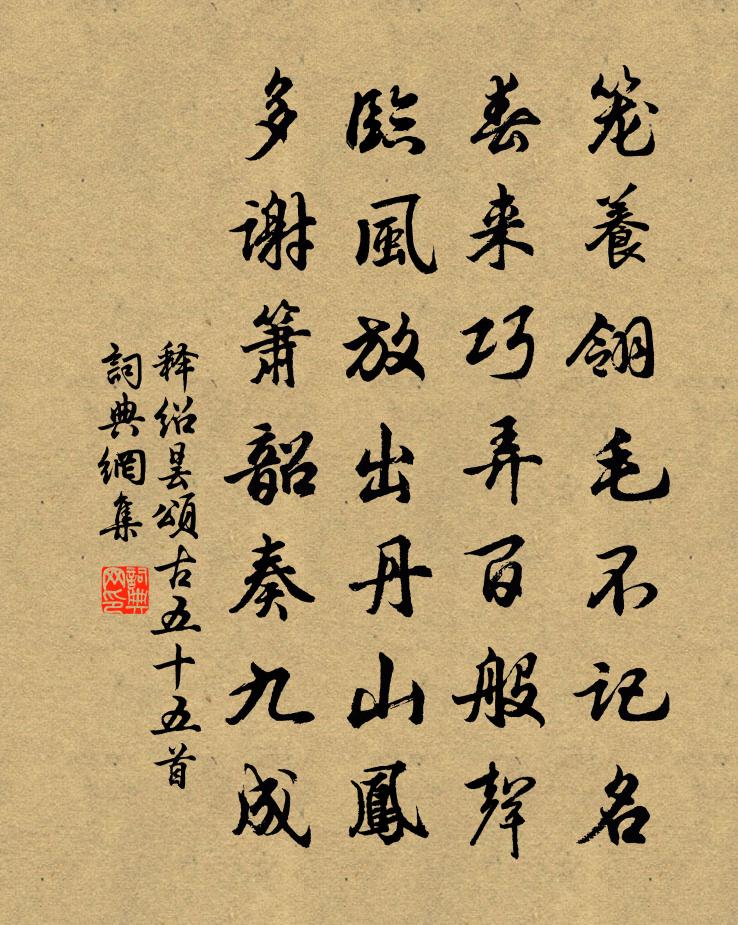 笼養翎毛不记名
春来巧弄百般聲
臨風放出丹山鳳
多謝箫韶奏九成
释绍昙頌古五十五首
詞典網集
詞典网印